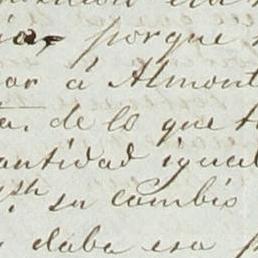 porque
á Almont
de lo que t
antidad igual
su cambio
daba esa p